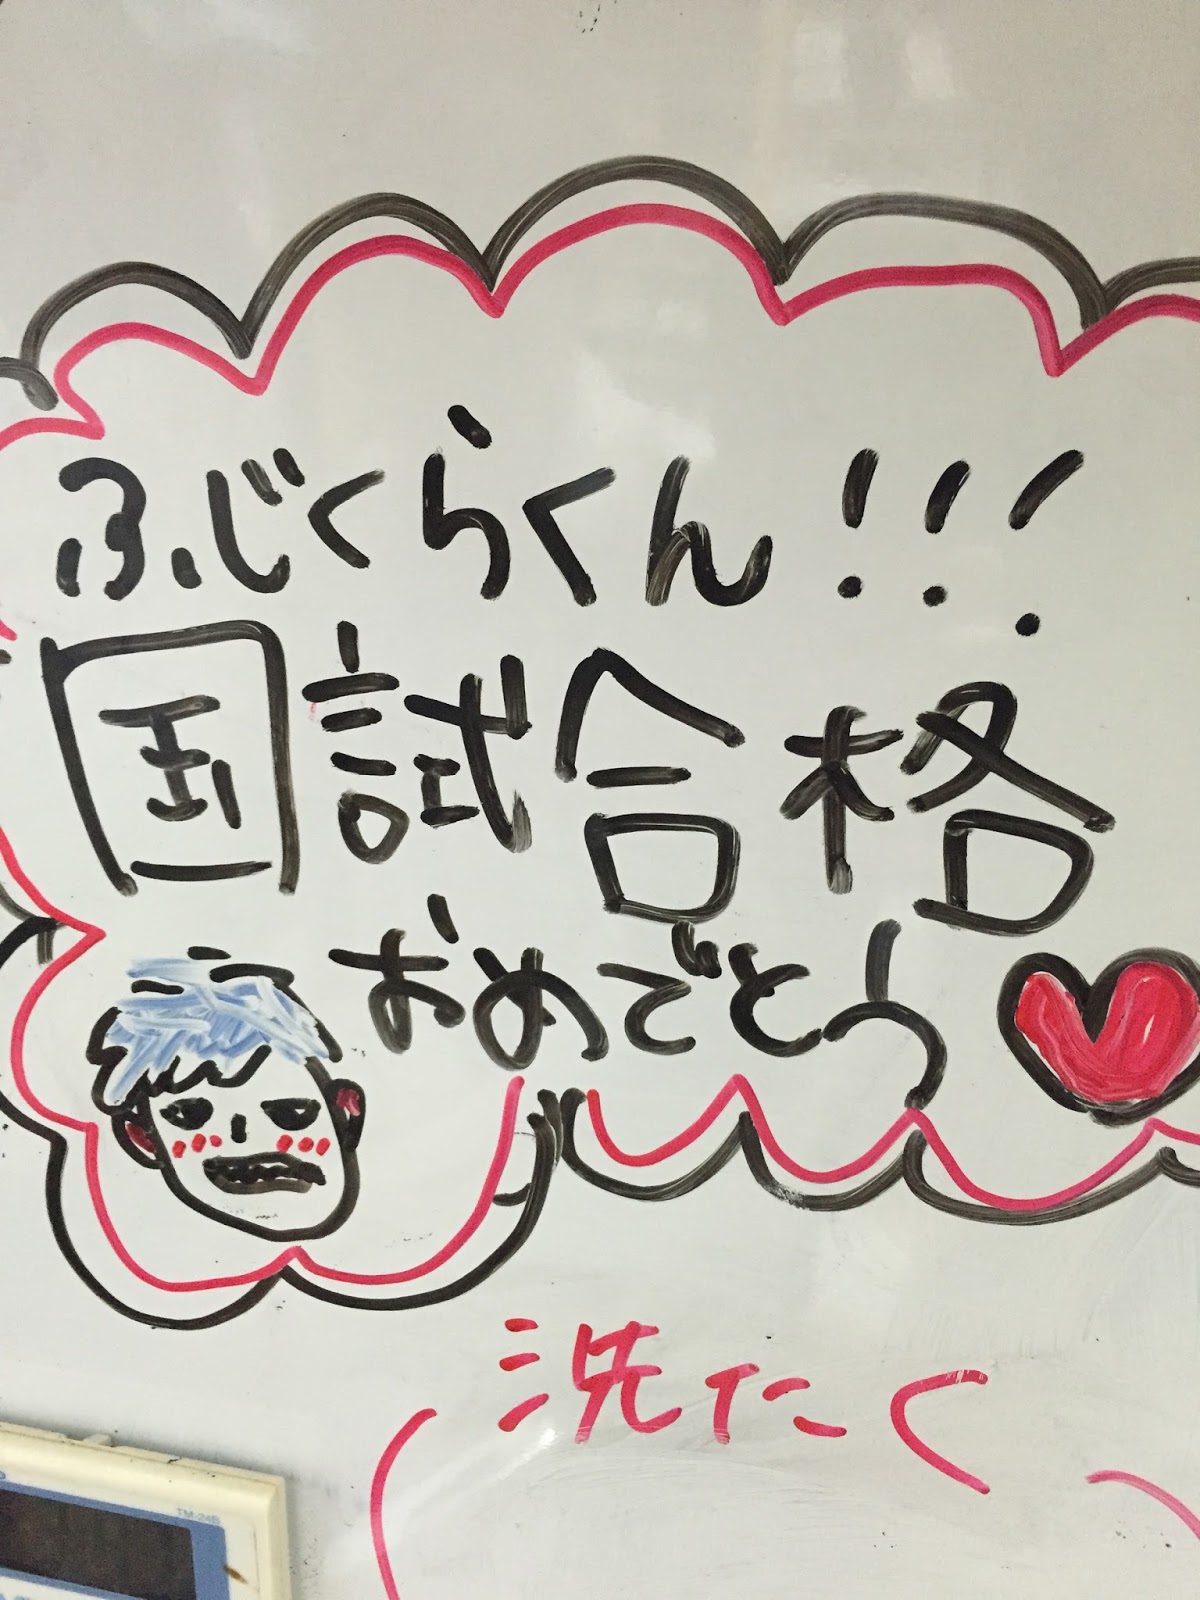 ふじくらくん!!!
国試合格
おめでとう
洗たく
TM-24B